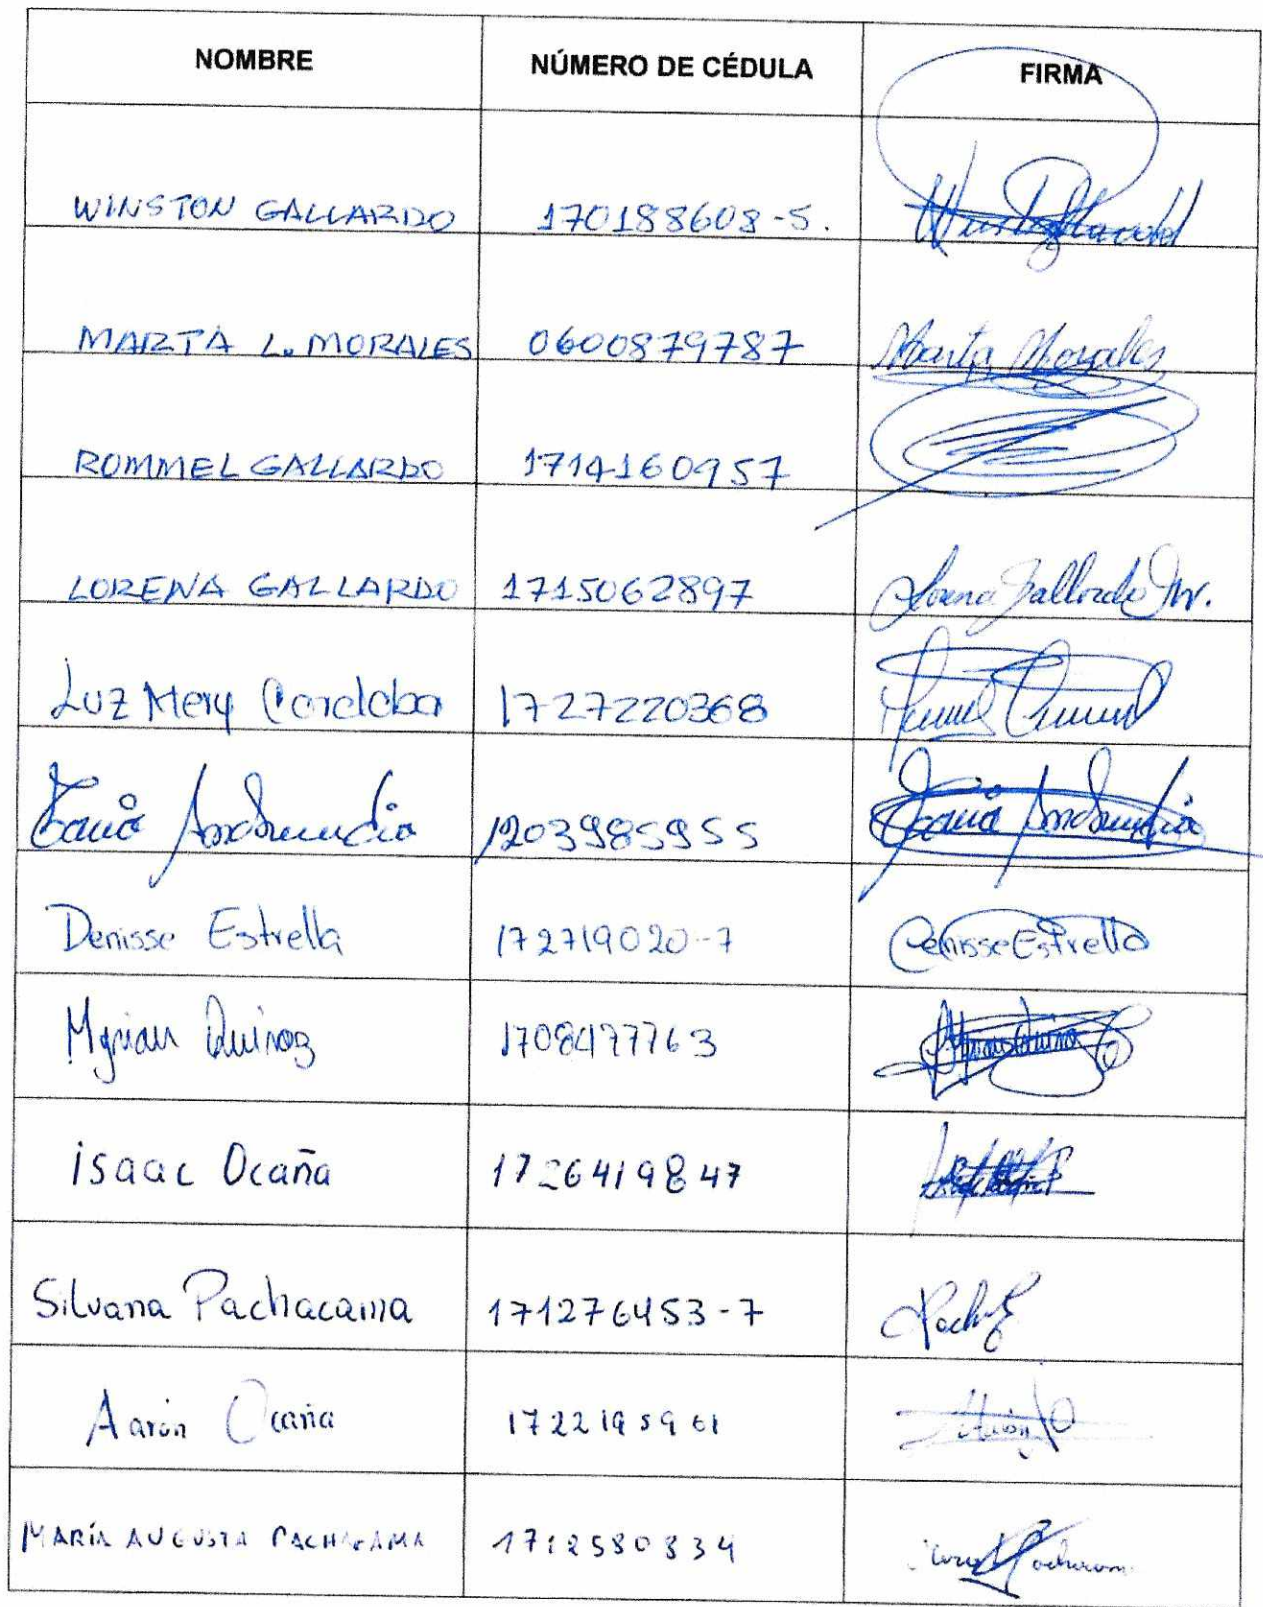 NOMBRE NÚMERO DE CÉDULA FIRMA
WINSTON GALLARDO 170188608-5.
MARTA L. MORALES 0600879787 Marta Morales
ROMMEL GALLARDO 1714160957
LORENA GALLARDO 1715062897 Lorena Gallardo M.
Luz Mery Cordoba 1727220368
Tania 1203985955 Tania
Denisse Estrella 172719020-7 Denisse Estrella
Myriam Quiroz 1708477763
isaac Ocaña 1726419847
Silvana Pachacama 171276453-7
Aarón Ocaña 1722195961
MARÍA AUGUSTA PACHACAMA